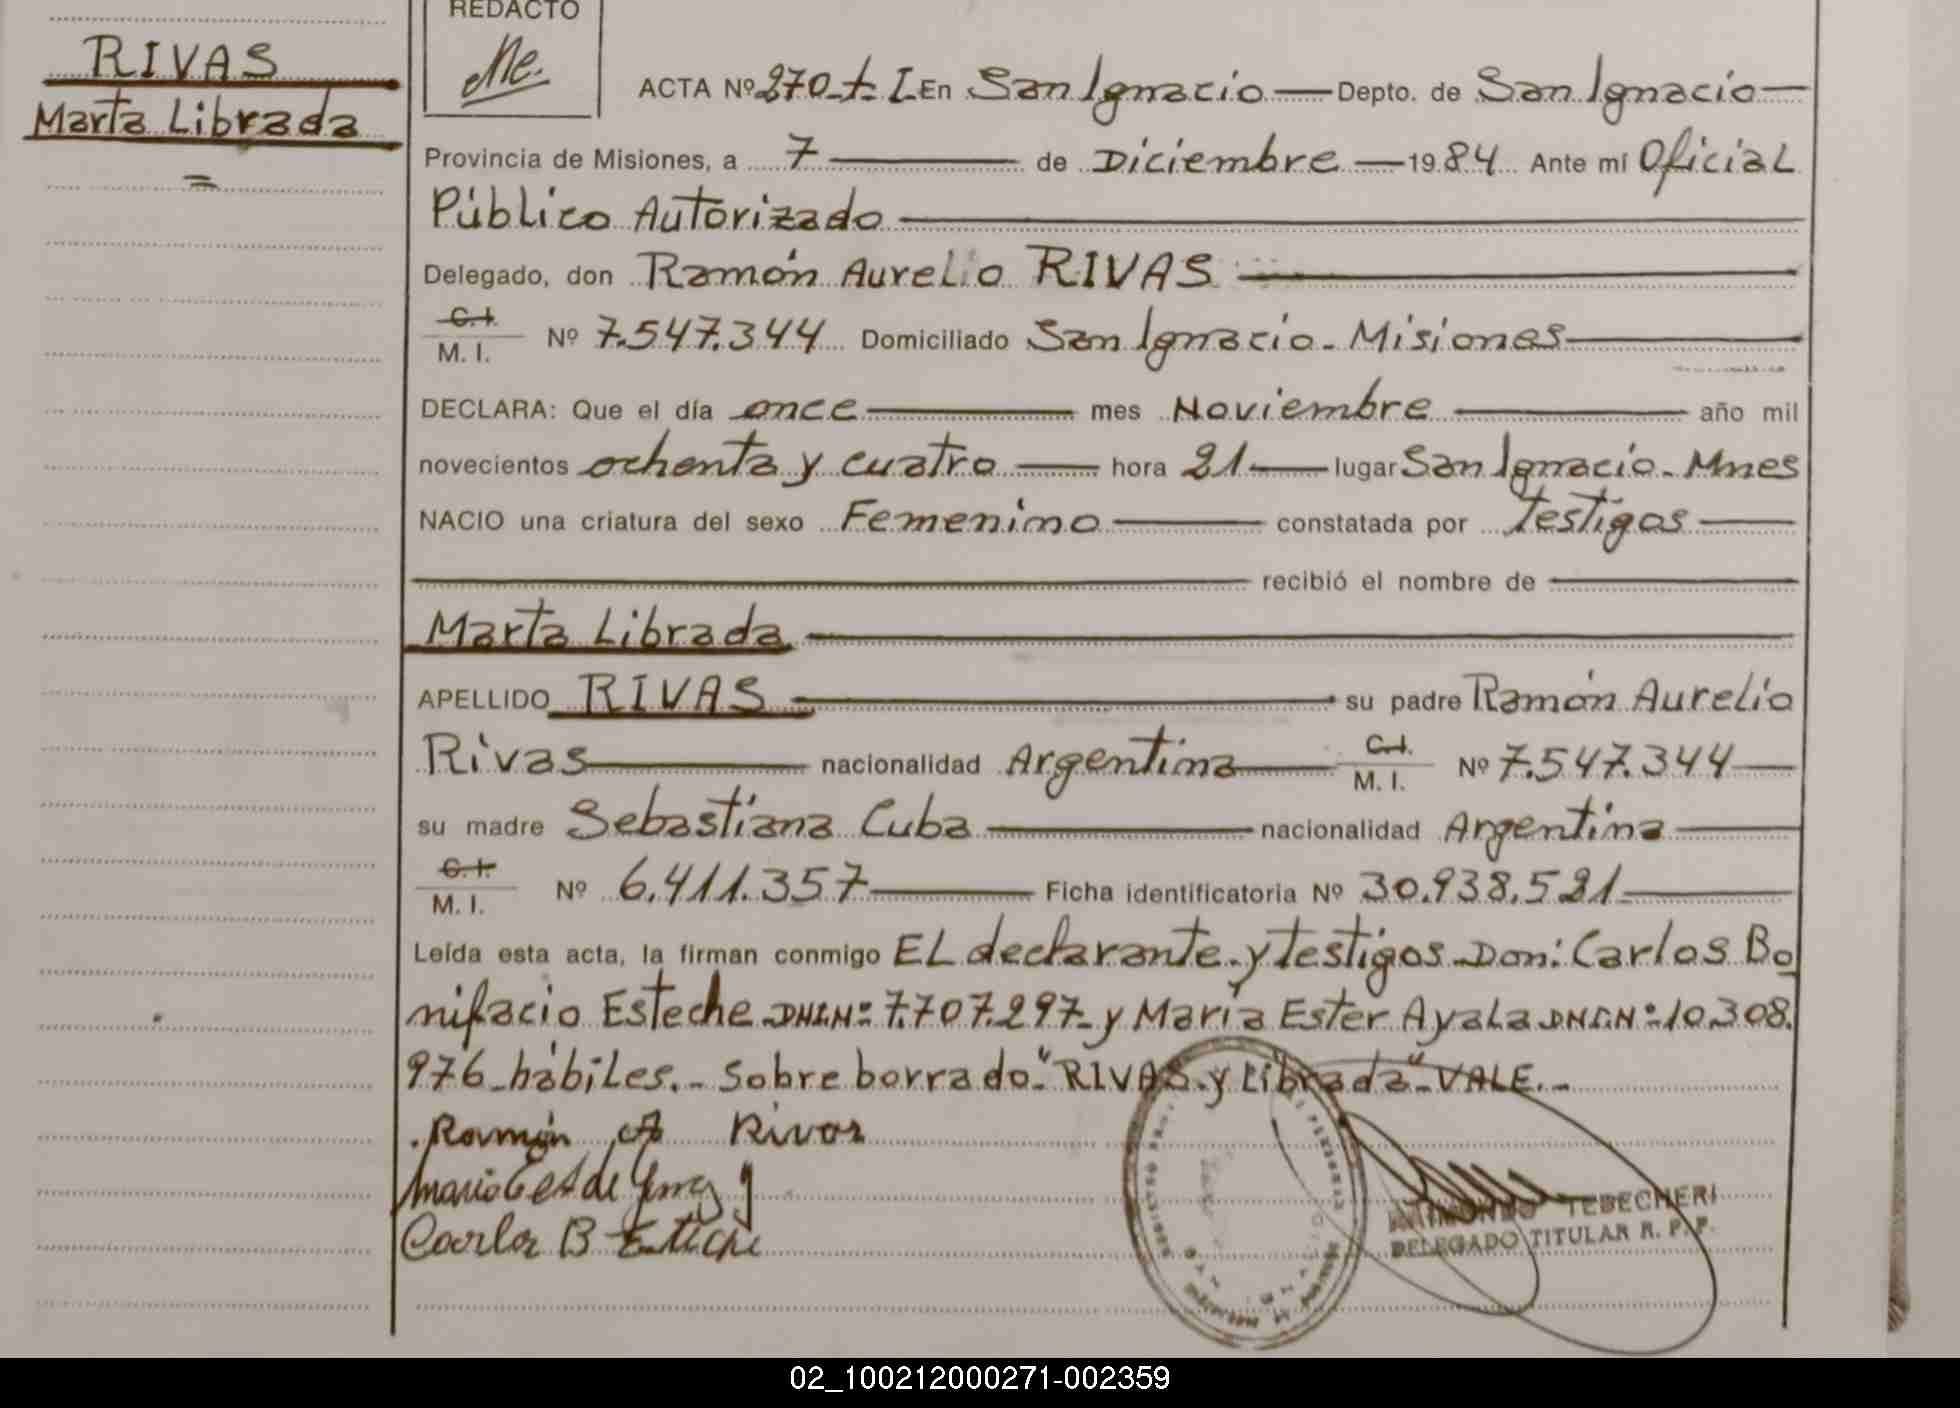 RIVAS
Marta Librada
=
REDACTO
ACTA Nº 270-t-I En San Ignacio — Depto. de San Ignacio —
Provincia de Misiones, a 7 — de Diciembre — 1984 Ante mí Oficial
Público Autorizado
Delegado, don Ramón Aurelio RIVAS
C.I.
M. I. Nº 7.547.344 Domiciliado San Ignacio - Misiones
DECLARA: Que el día once — mes Noviembre — año mil
novecientos ochenta y cuatro — hora 21 — lugar San Ignacio - Mnes
NACIO una criatura del sexo Femenino — constatada por testigos —
recibió el nombre de
Marta Librada
APELLIDO RIVAS — su padre Ramón Aurelio
Rivas — nacionalidad Argentina — C.I. M. I. Nº 7.547.344
su madre Sebastiana Cuba — nacionalidad Argentina
C.I.
M. I. Nº 6.411.357 — Ficha identificatoria Nº 30.938.521
Leída esta acta, la firman conmigo EL declarante y testigos Don: Carlos Bo
nifacio Esteche DNI.Nº 7.707.297- y María Ester Ayala DNI.Nº 10.308.
976 hábiles.- Sobre borrado "RIVAS y Librada" VALE.-
Ramón A Rivas
Carlos B Esteche
TEBECHERI
DELEGADO TITULAR R. P. P.
02_100212000271-002359